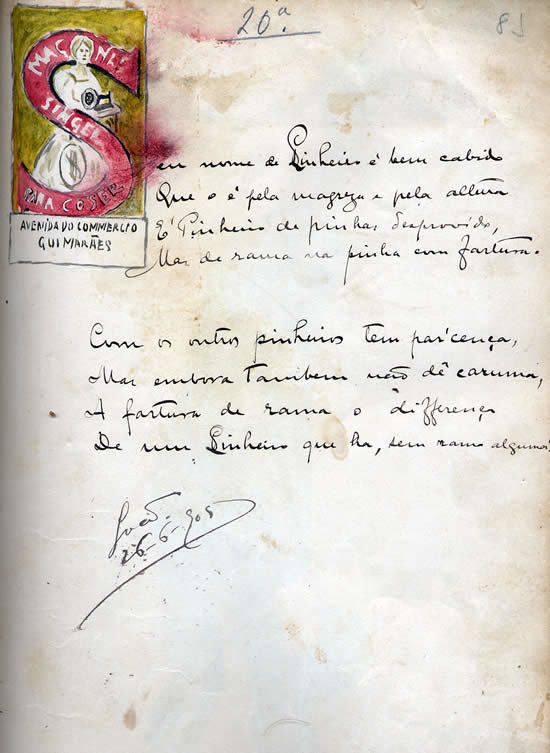 20ª.
85
MACHINAS
SINGER
PARA COSER
AVENIDA DO COMMERCIO
GUIMARÃES
eu nome de Pinheiro é bem cabido
Que o é pela magreza e pela altura
E' Pinheiro de pinhas desprovido,
Mas de rama na pinha com fartura.
Com os outros pinheiros tem par'cença,
Mas embora tambem não dê caruma,
A fartura de rama o differença
De um Pinheiro que ha, sem rama alguma!
26-6-905